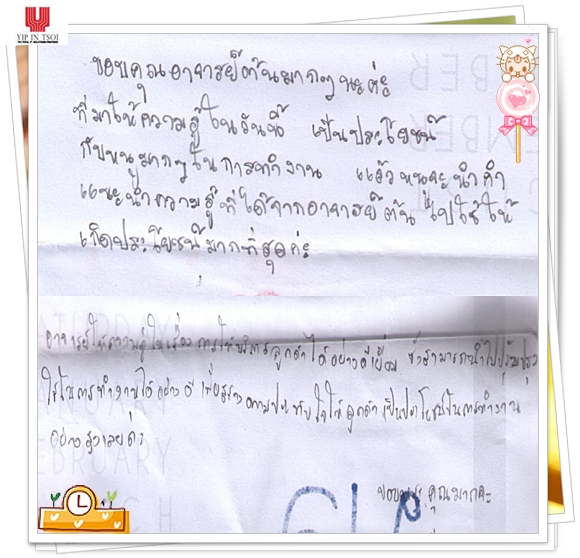 YIP IN TSOI
ขอบคุณอาจารย์ต้นมากๆ นะค่ะ
ที่มาให้ความรู้ในวันนี้ เป็นประโยชน์
กับหนูมากๆในการทำงาน แล้วหนูจะนำคำ
แนะนำความรู้ที่ได้จากอาจารย์ต้น ไปใช้ให้
เกิดประโยชน์มากที่สุดค่ะ
อาจารย์ให้ความรู้ในเรื่องการให้บริการลูกค้าได้อย่างดีเยี่ยม ซึ่งสามารถนำไปปรับปรุง
ใช้ในการทำงานได้อย่างดี เพื่อสร้างความประทับใจให้ลูกค้า เป็นประโยชน์ในการทำงาน
อย่างสูงเลยค่ะ
ขอบพระคุณมากค่ะ